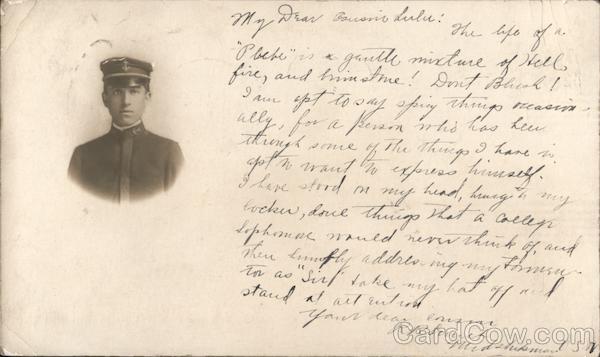 My Dear Cousin Lulu:
The life of a
"Plebe" is a gentle mixture of Hell
fire, and brimstone! Dont Blush!
I am apt to say spicy things occasion-
ally, for a person who has been
through some of the things I have is
apt to want to express himself.
I have stood on my head, hung in my
locker, done things that a college
Sophomore would never think of, and
then humbly addressing my tormen-
tor as "Sir" take my hat off and
stand at attention
Your dear cousin
Midshipman
CardCow.com